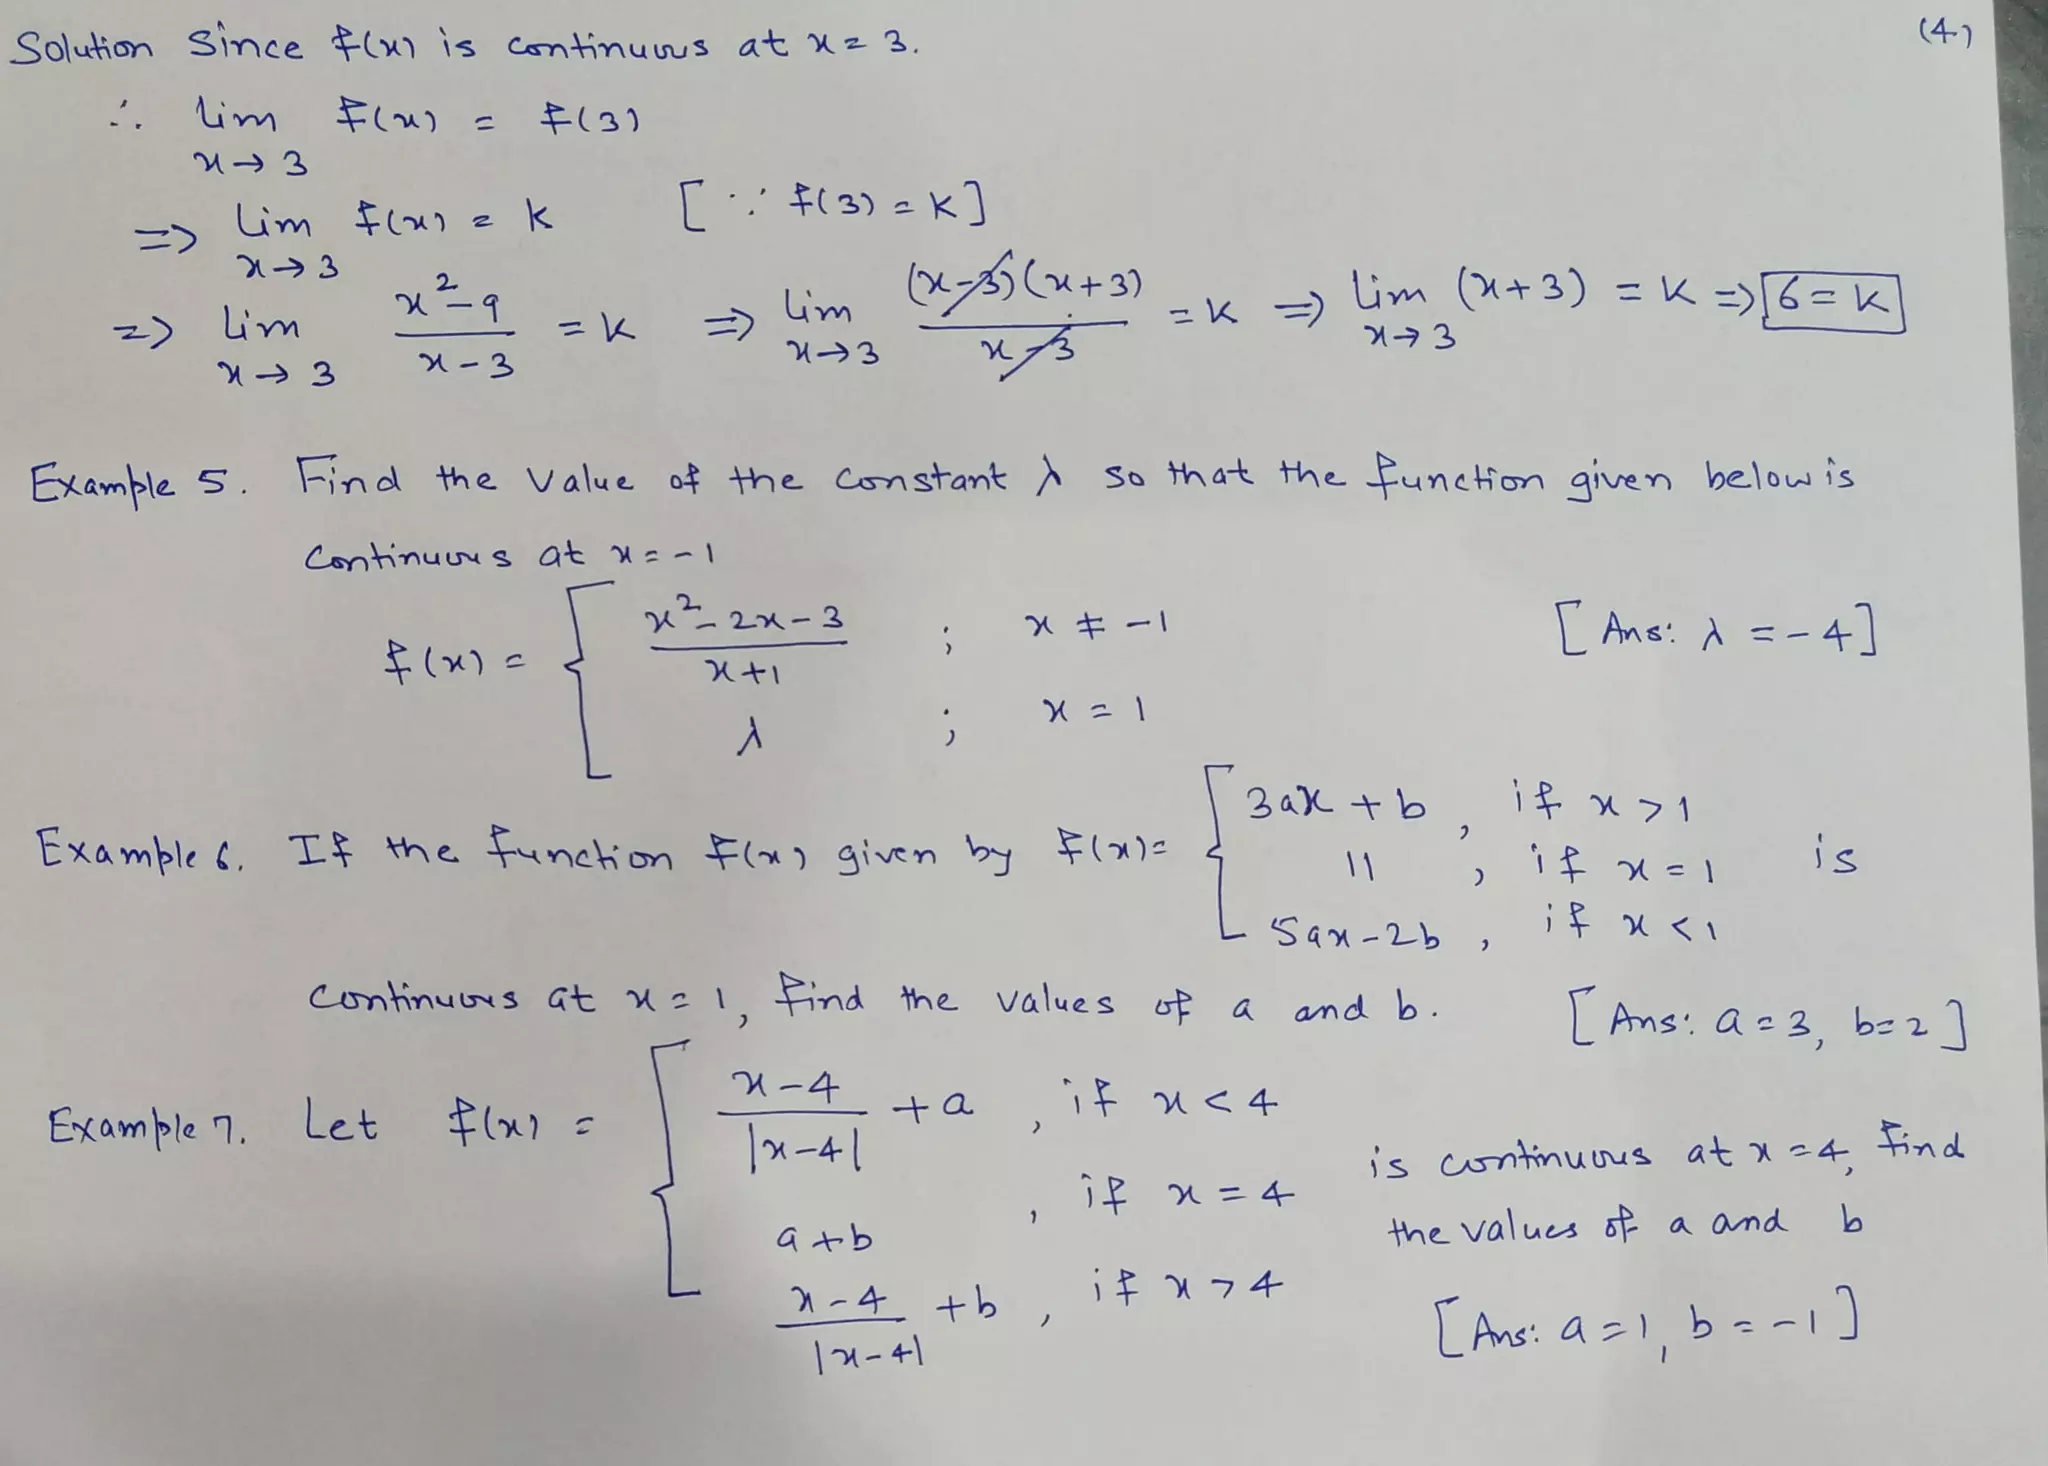 (4)
Solution Since f(x) is continuous at x = 3.
∴ lim f(x) = f(3)
x→3
=> lim f(x) = k [∵ f(3) = k]
x→3
=> lim x²-9 / x-3 = k => lim (x-3)(x+3) / x-3 = k => lim (x+3) = k => 6 = k
x→3 x→3 x→3
Example 5. Find the value of the constant λ so that the function given below is
continuous at x = -1
f(x) = { x²-2x-3 / x+1 ; x ≠ -1 [Ans: λ = -4]
λ ; x = 1
Example 6. If the function f(x) given by f(x) = { 3ax + b , if x > 1
11 , if x = 1 is
5ax-2b , if x < 1
continuous at x = 1, find the values of a and b. [Ans: a = 3, b = 2]
Example 7. Let f(x) = { x-4 / |x-4| + a , if x < 4
a+b , if x = 4
x-4 / |x-4| + b , if x > 4
is continuous at x = 4, find
the values of a and b
[Ans: a = 1, b = -1]